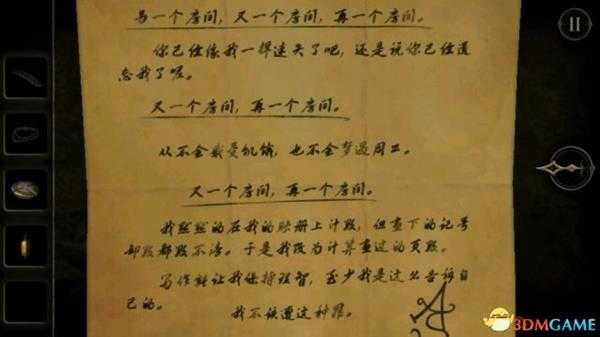 另一个房间，又一个房间，再一个房间。
你已经像我一样迷失了吧，还是说你已经遗
忘我了呢。
又一个房间，再一个房间。
从不会感受饥饿，也不会梦遇周工。
又一个房间，再一个房间。
我默默的在我的账册上计数，但查下的记号
却数都数不清。于是我改为计算查过的页数。
写作能让我保持理智，至少我是这么告诉自
己的。
我不该遭这种罪。
3DMGAME